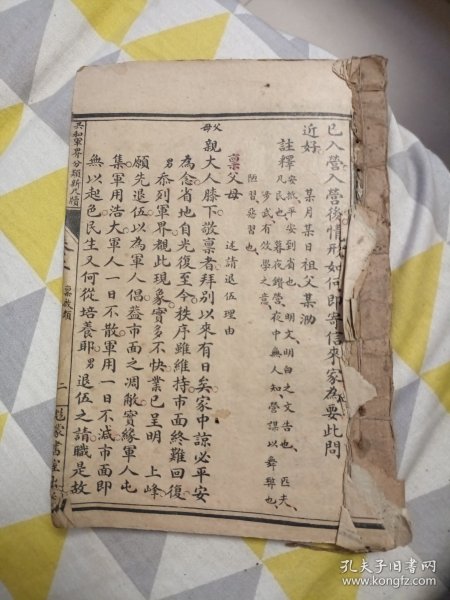 已入營、入營後情形如何、即寄信來家為要、此問
近好、
某月某日祖父某泐
註釋 安抵、平安到省也、明文、明白之文告也、匹夫、
凡民也、暮夜鑽營、夜中無人知、營謀以舞弊也、
修武有效學之意、
陋習、惡習也、
稟父母 述請退伍理由
父母親大人膝下、敬稟者、拜別以來、有日矣、家中諒必平安
為念、省地自光復至今、秩序雖維持、市面終難回復、
男忝列軍界、覩此現象、實多不快、業已呈明 上峰、
願先退伍、以為軍人倡、益市面之凋敝、實緣軍人屯
集、軍用浩大、軍人一日不散、軍用一日不減、市面即
無以起色、民生又何從培養耶、男退伍之請、職是故
共和軍界分類新尺牘
稟啟類
二
孔夫子旧书网
www.kongfz.com